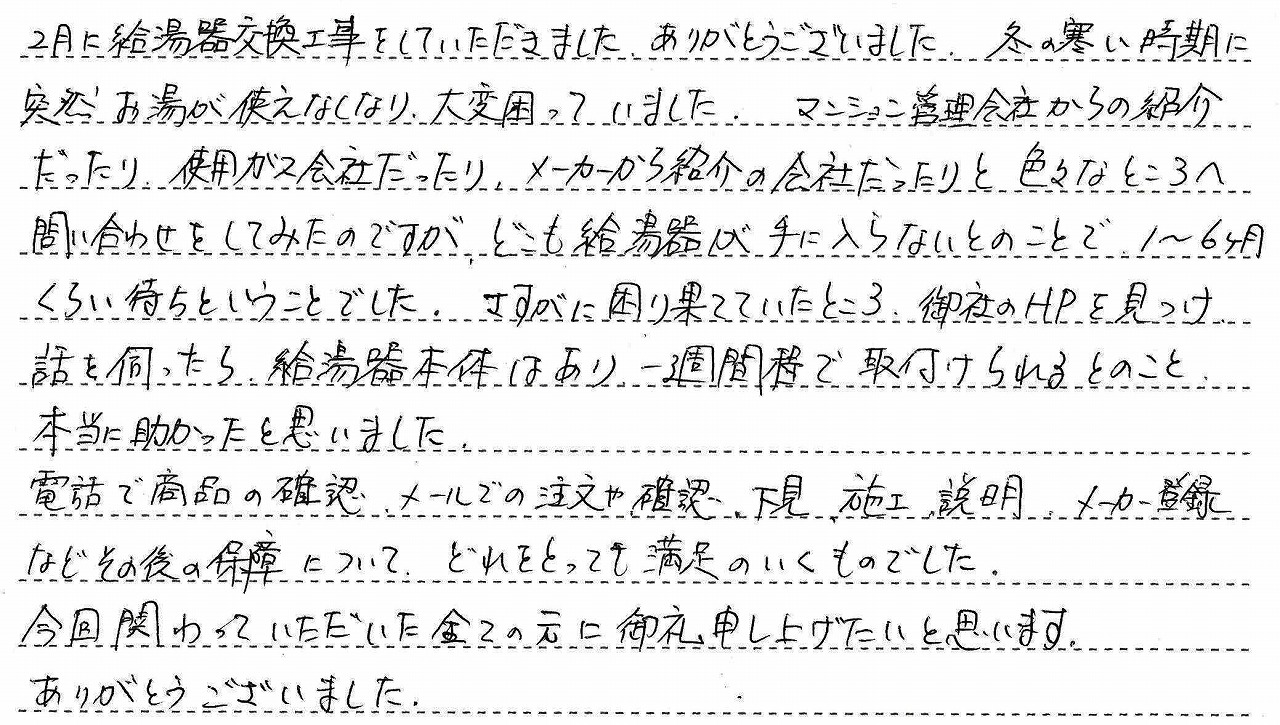 2月に給湯器交換工事をしていただきました。ありがとうございました。冬の寒い時期に
突然お湯が使えなくなり、大変困っていました。マンション管理会社からの紹介
だったり、使用ガス会社だったり、メーカーから紹介の会社だったりと色々なところへ
問い合わせをしてみたのですが、どこも給湯器が手に入らないとのことで、1〜6ヶ月
くらい待ちということでした。さすがに困り果てていたところ、御社のHPを見つけ、
話を伺ったら、給湯器本体はあり、一週間程で取付けられるとのこと、
本当に助かったと思いました。
電話で商品の確認、メールでの注文や確認、下見、施工、説明、メーカー登録
などその後の保障について、どれをとっても満足のいくものでした。
今回関わっていただいた全ての元に御礼申し上げたいと思います。
ありがとうございました。